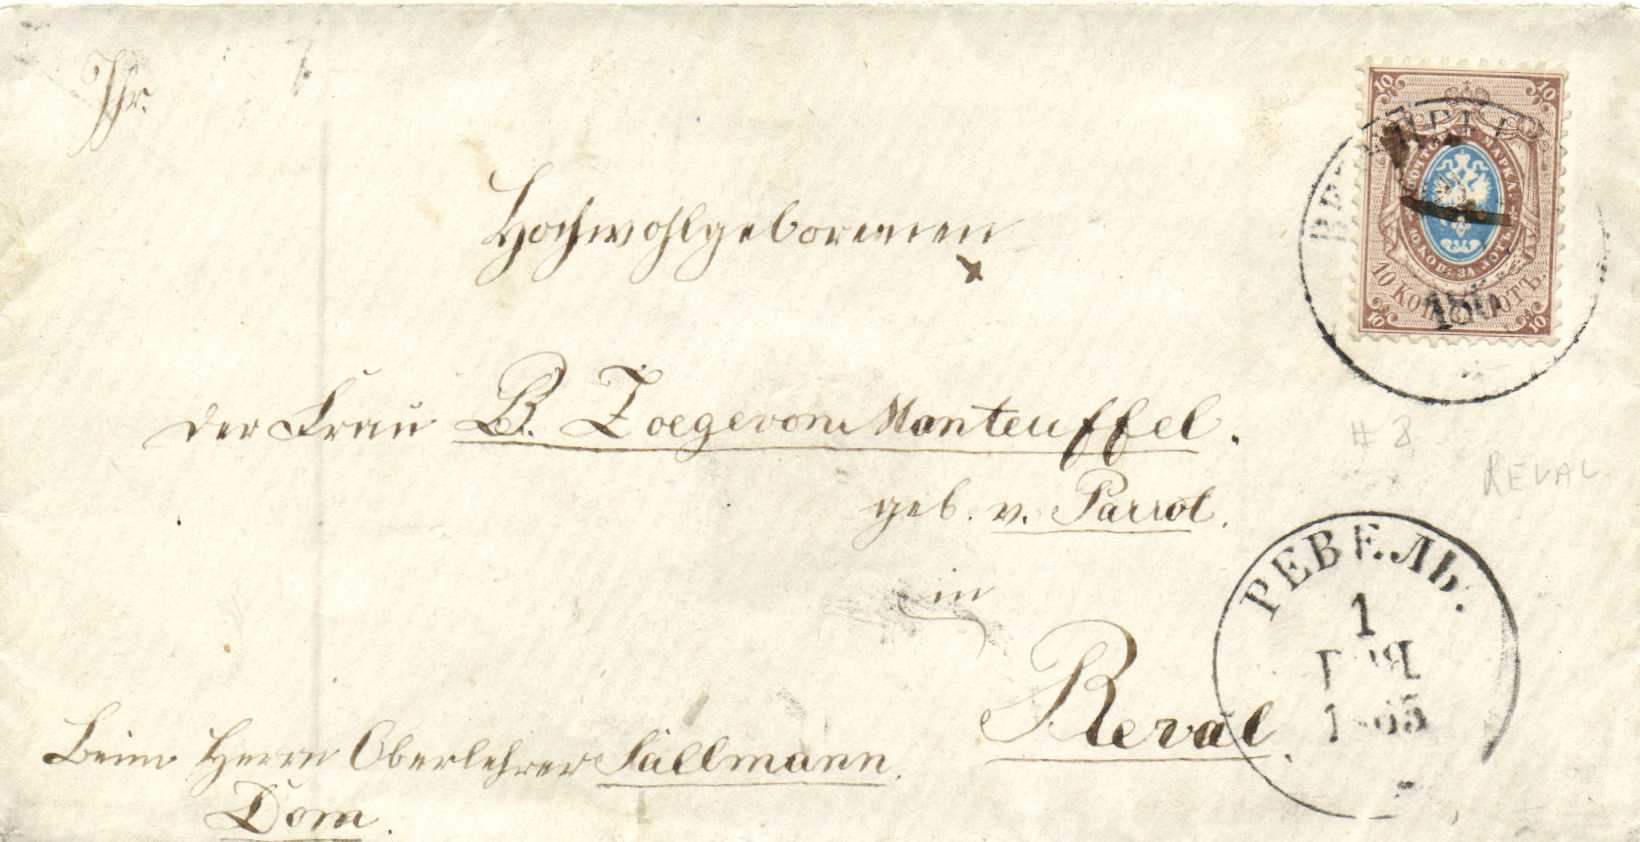 Ihr.
Hochwohlgeborenen
der Frau B. Zoege von Manteuffel.
geb. v. Parrot.
in
Reval.
Beim Herrn Oberlehrer Sallmann.
Dom.
10 10
ПОЧТОВ МАРКА
ЗА ЛОТЪ
10 КОП ЛОТЪ.
10 10
# 8
REVAL
РЕВЕЛЬ.
1
1865